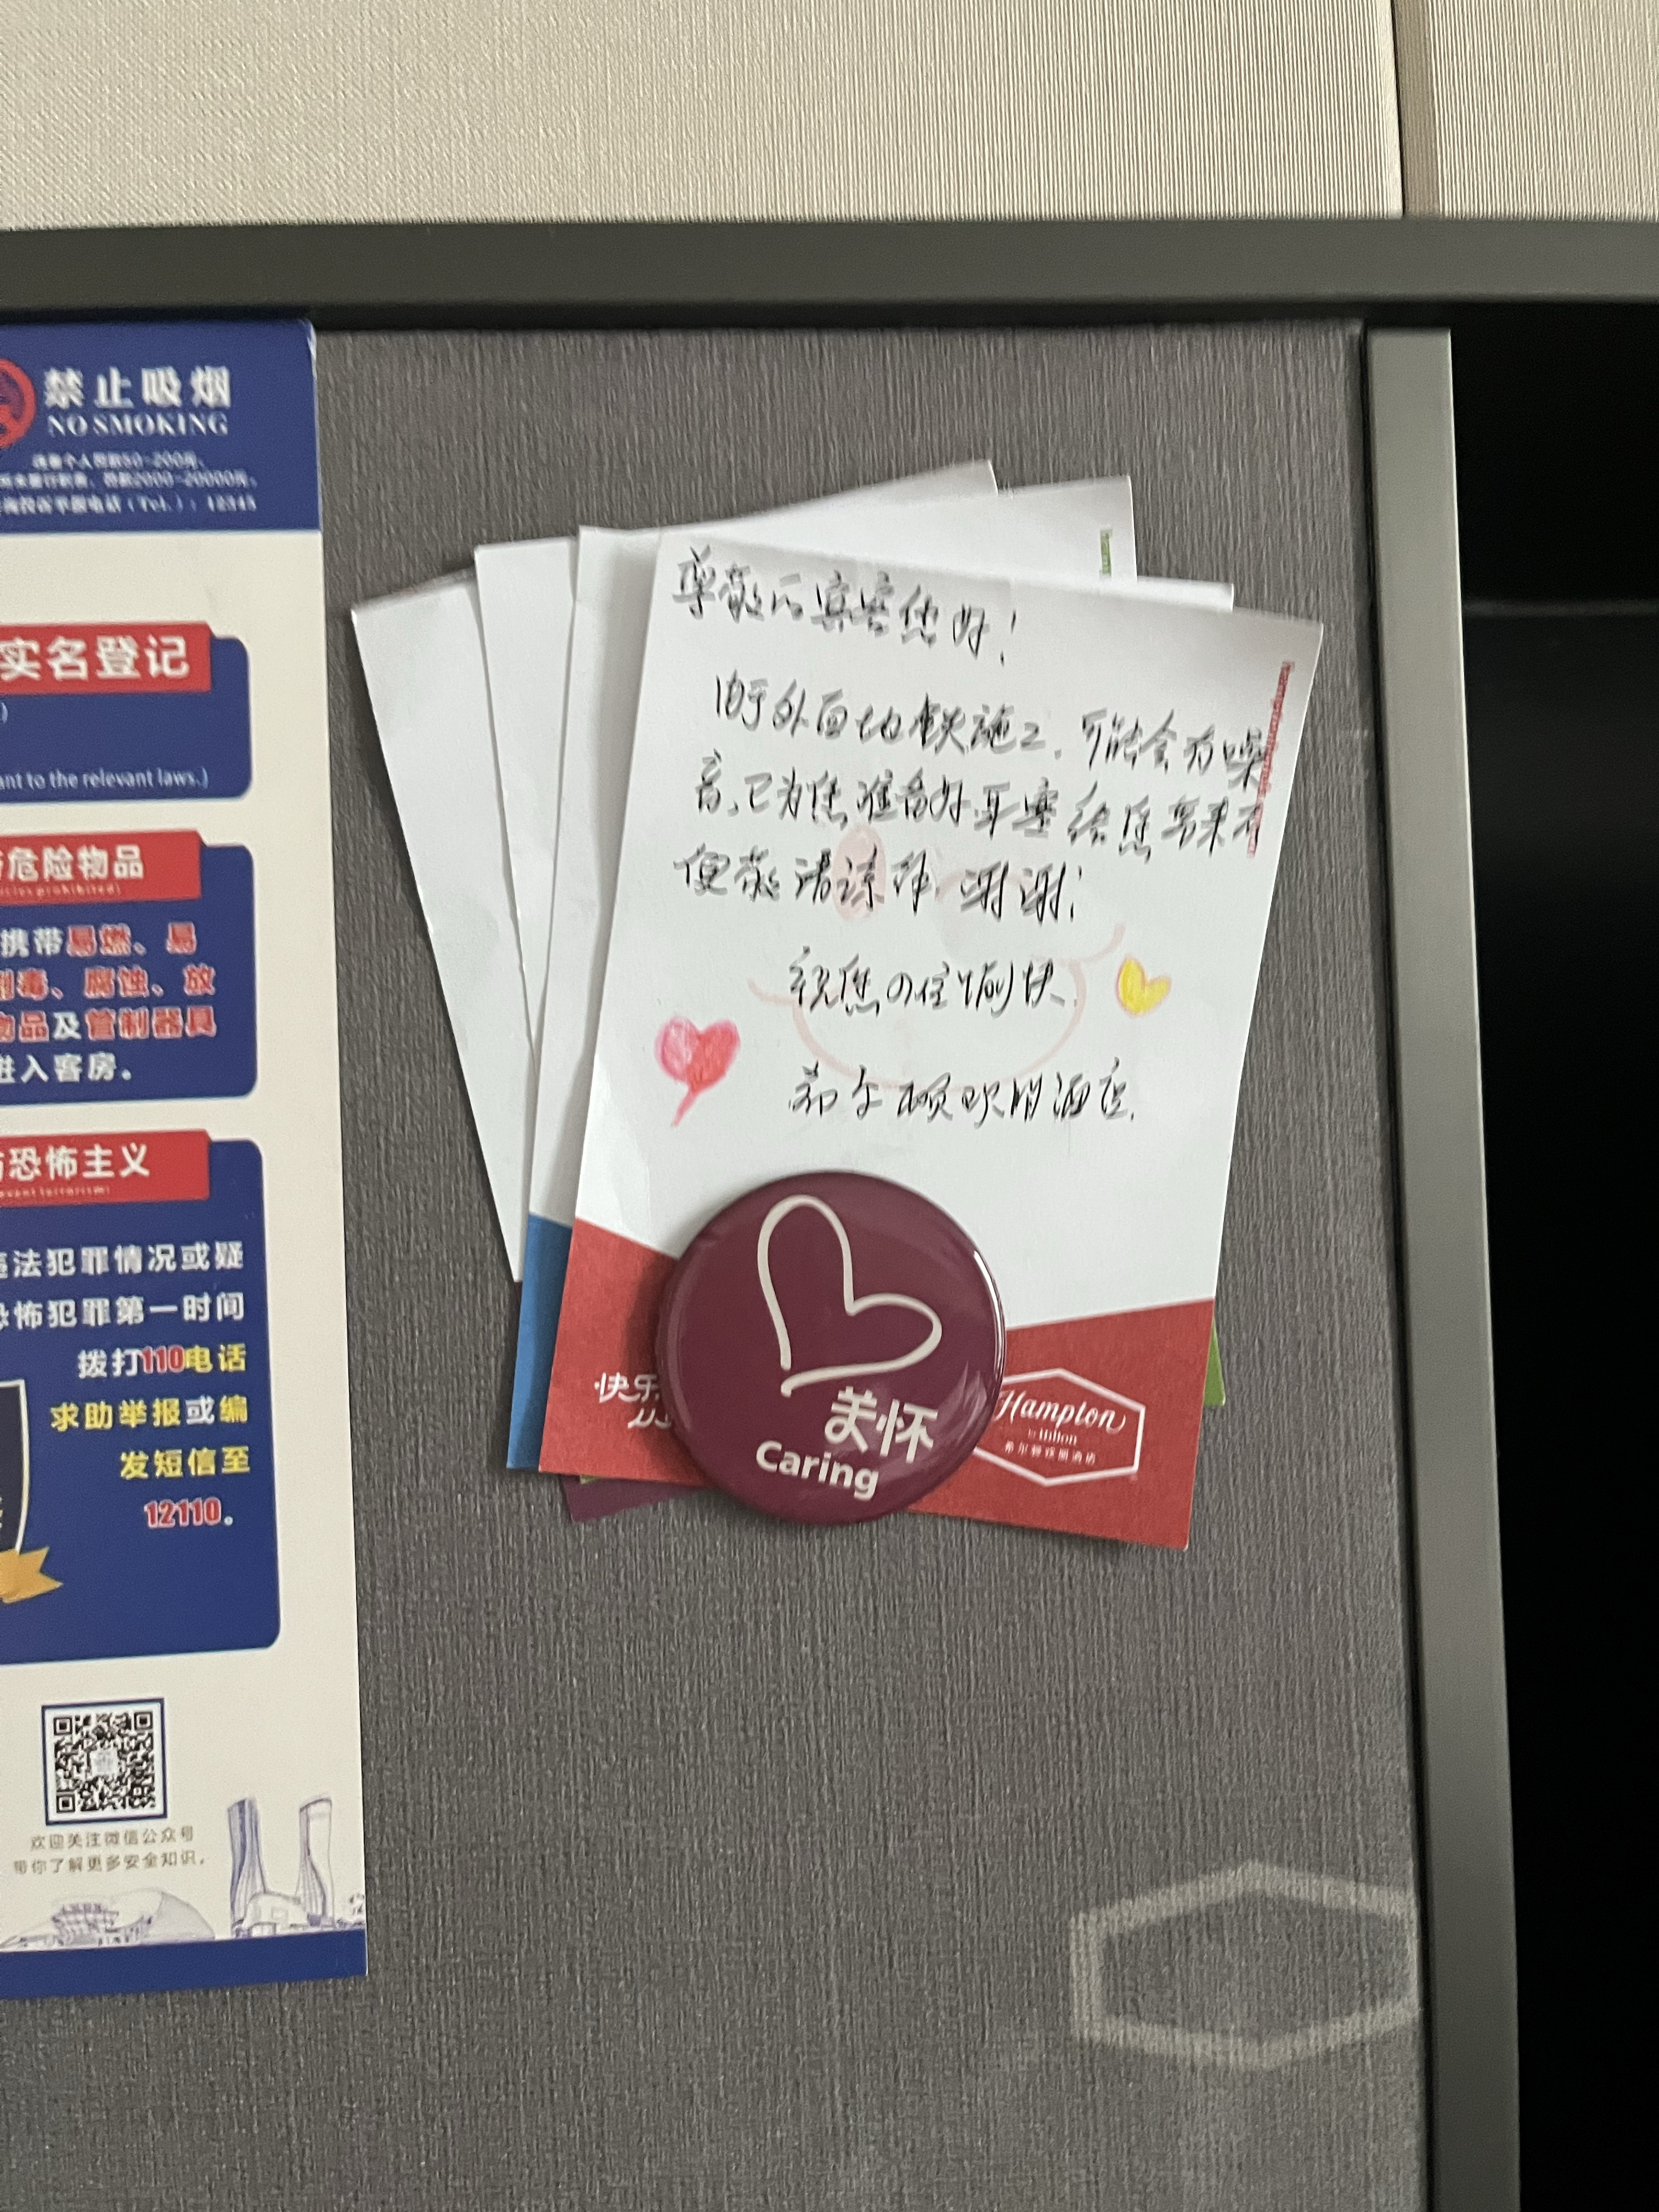 禁止吸烟
NO SMOKING
实名登记
ant to the relevant laws.)
危险物品
携带易燃、易
毒、腐蚀、放
物品及管制器具
进入客房。
恐怖主义
法犯罪情况或疑
恐怖犯罪第一时间
拨打110电话
求助举报或编
发短信至
12110。
欢迎关注微信公众号
带你了解更多安全知识。
尊敬的宾客您好!
由于外面地铁施工,可能会有噪
音,已为您准备好耳塞给您带来不
便敬请谅解,谢谢!
祝您の住愉快
希尔顿欢朋酒店.
快乐
关怀
Caring
Hampton
by Hilton
希尔顿欢朋酒店